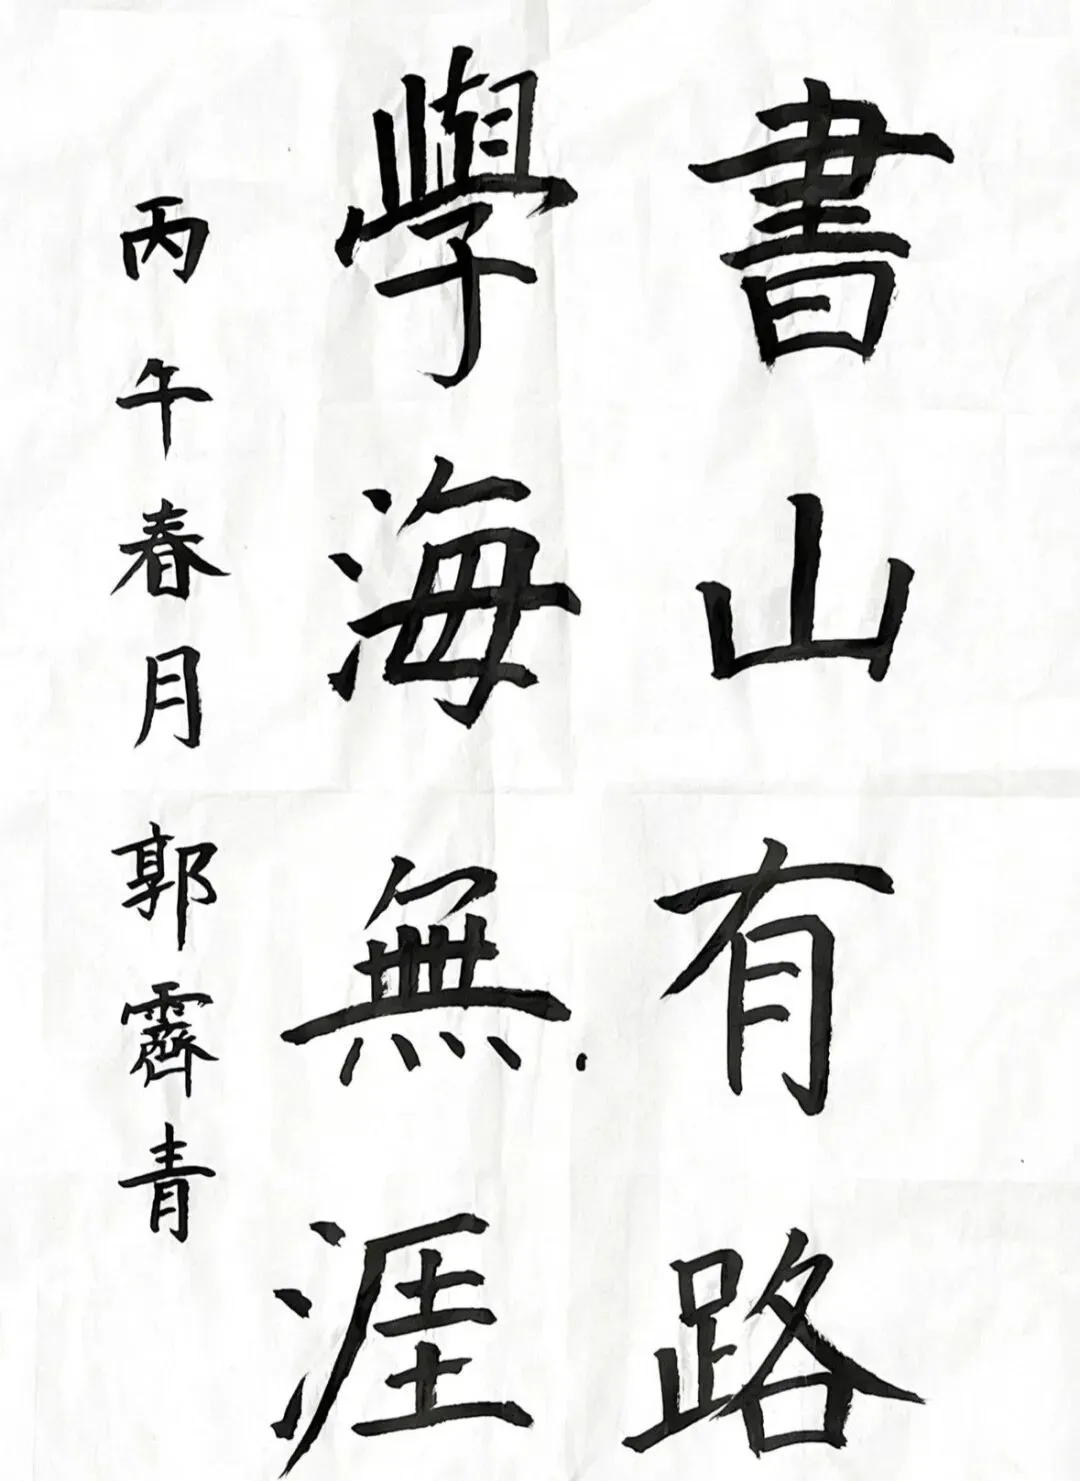 書山有路
學海無涯
丙午春月郭霽青